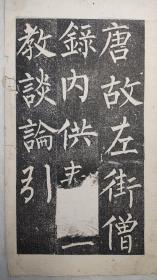 唐故左街僧
錄内供
教談論引